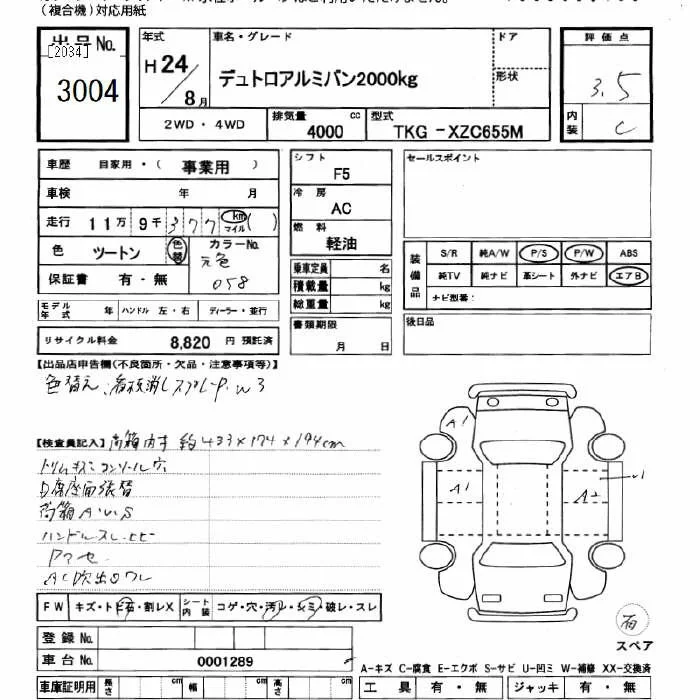 (複合機)対応用紙
出品No.
[2034]
3004
年式
H24/8月
車名・グレード
デュトロアルミバン2000kg
ドア
形状
評価点
3.5
内装
C
2WD・4WD
排気量 4000 cc
型式 TKG-XZC655M
車歴 自家用・( 事業用 )
車検 年 月
走行 11万9千377 km マイル ( )
色 ツートン 色替 カラーNo. 元色 058
保証書 有・無
モデル年式 年 ハンドル 左・右 ディーラー・並行
リサイクル料金 8,820 円 預託済
シフト F5
冷房 AC
燃料 軽油
乗車定員 名
積載量 kg
総重量 kg
書類期限 月 日
セールスポイント
装備品
S/R 純A/W P/S P/W ABS
純TV 純ナビ 革シート 外ナビ エアB
ナビ型番:
後日品
【出品店申告欄(不良箇所・欠品・注意事項等)】
色替え、看板消しスプレーP. W3
【検査員記入】 荷箱内寸 約433×174×194cm
トリムキズ コンソール穴
D席座面張替
荷箱A.U.S
ハンドルスレ.ヒビ
AC吹出口ワレ
A1
A1
A2
FW キズ・トビ石・割レX シート内装 コゲ・穴・汚レ・シミ・破レ・スレ
登録No.
車台No. 0001289
車庫証明用 長さ cm 幅 cm 高さ cm
スペア
A-キズ C-腐食 E-エクボ S-サビ U-凹ミ W-補修 XX-交換済
工具 有・無 ジャッキ 有・無